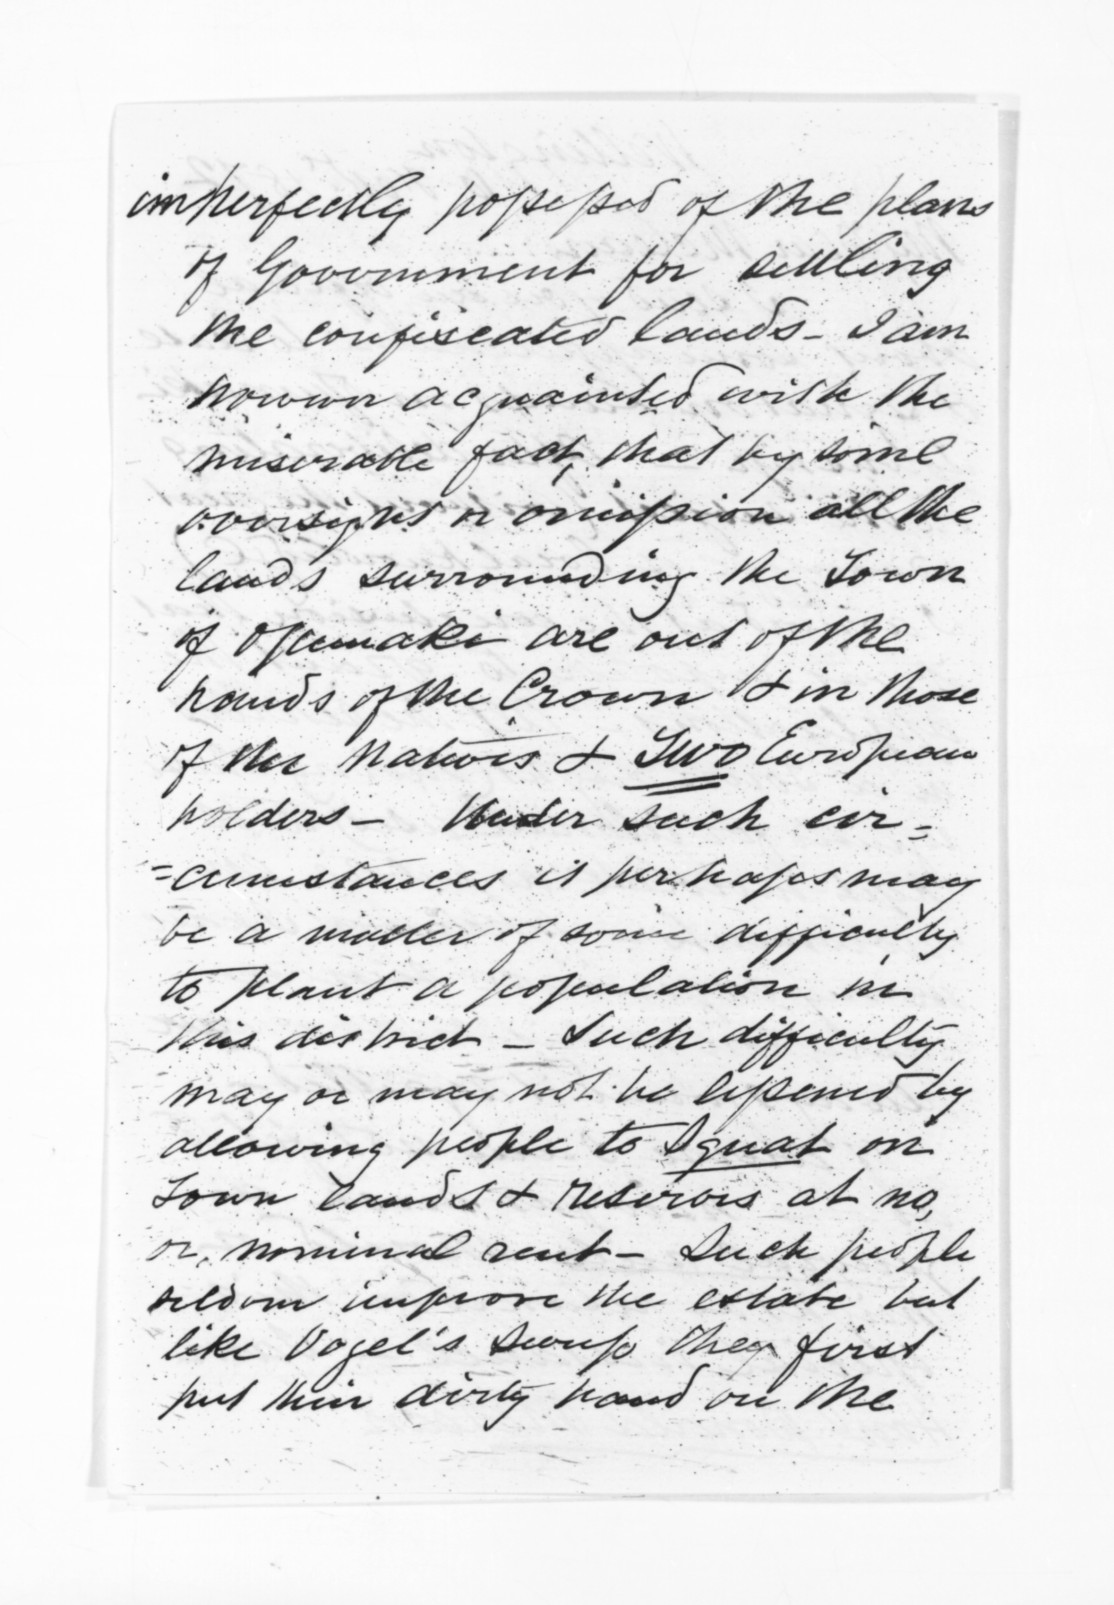 imperfectly possessed of the plans
of Government for settling
the confiscated lands – I am
however acquainted with the
miserable fact, that by some
oversight or omission all the
lands surrounding the Town
of Opumaki are out of the
hands of the Crown & in those
of the Natives & Two European
holders – Under such cir=
=cumstances it perhaps may
be a matter of some difficulty
to plant a population in
this district – Such difficulty
may or may not be lessened by
allowing people to Squat on
Town lands & reserves at no,
or, nominal rent – Such people
seldom improve the estate but
like Vogel's they first
put their dirty hand on the